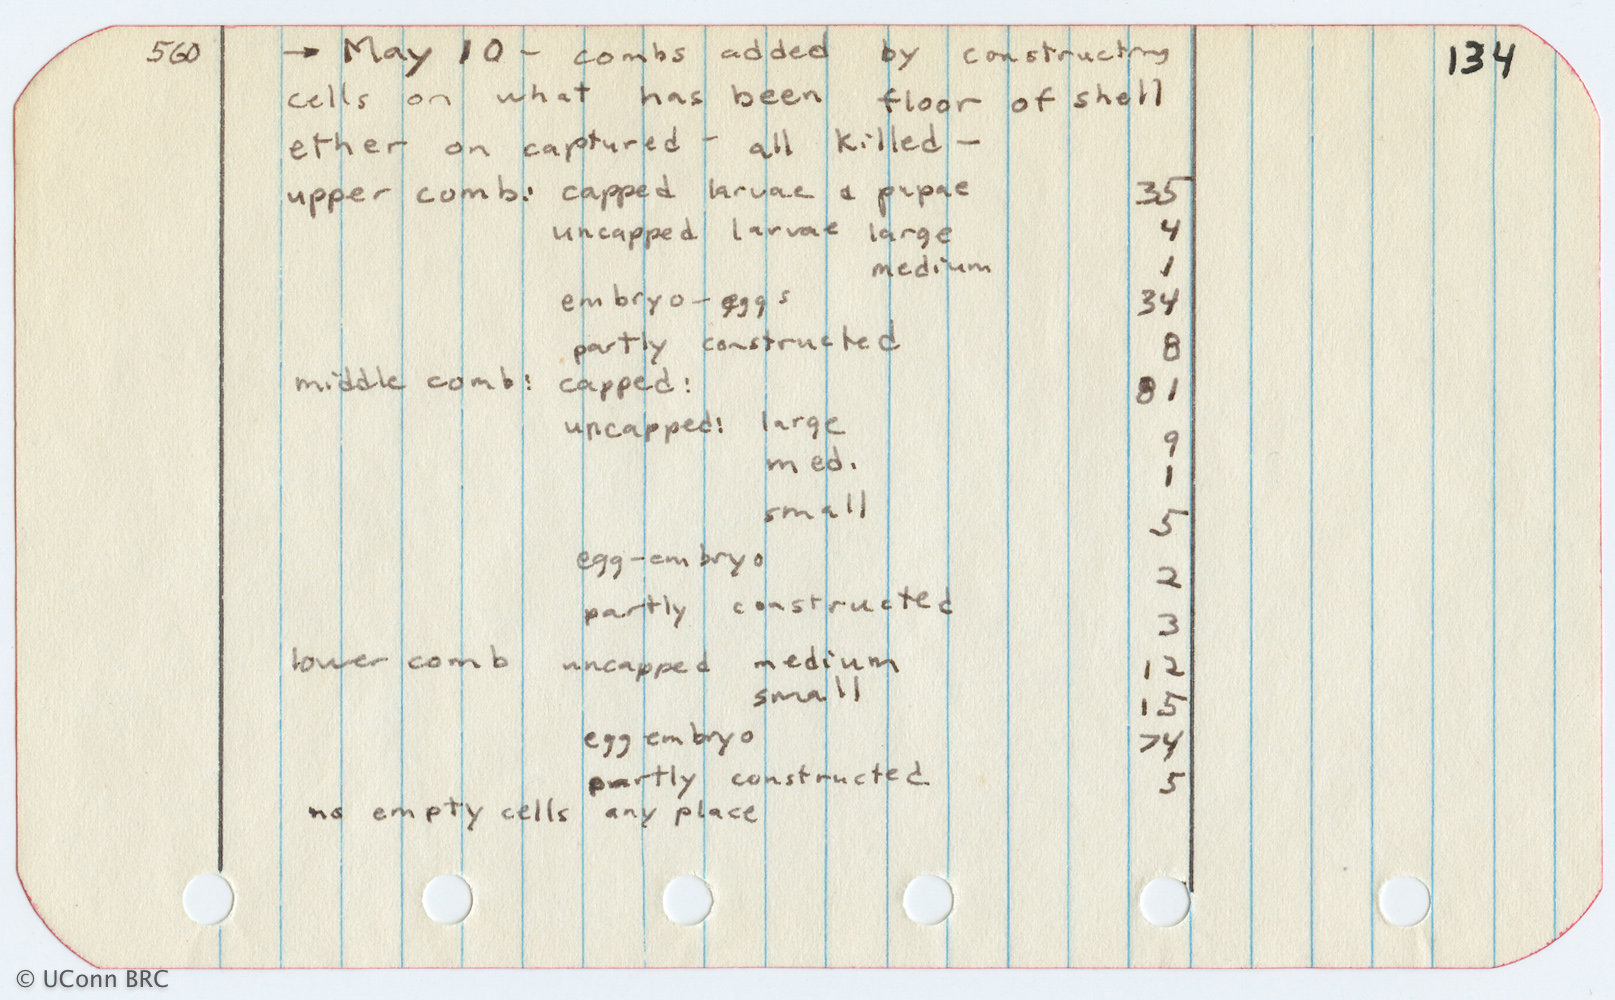 560 → May 10 - combs added by constructing 134
cells on what has been floor of shell
ether on captured - all killed -
upper comb: capped larvae & pupae 35
uncapped larvae large 4
medium 1
embryo-eggs 34
partly constructed 8
middle comb: capped: 81
uncapped: large 9
med. 1
small 5
egg-embryo 2
partly constructed 3
lower comb uncapped medium 12
small 15
egg embryo 74
partly constructed 5
no empty cells any place
© UConn BRC